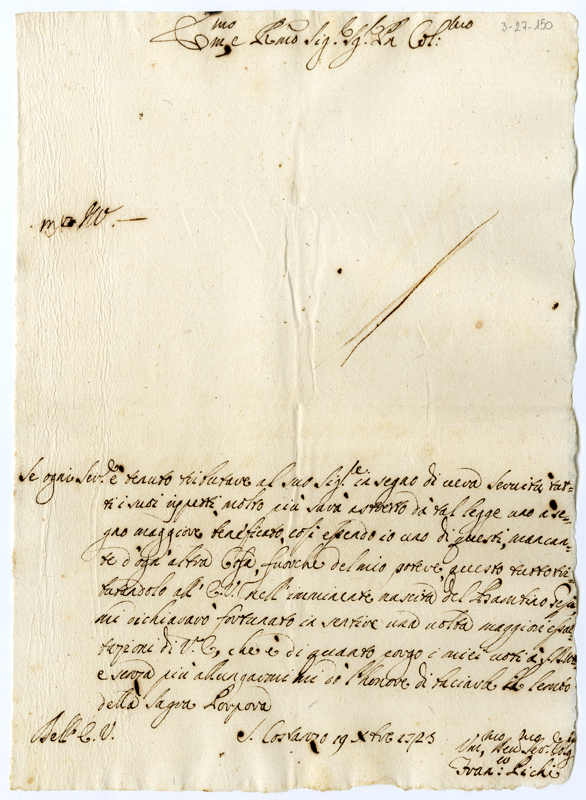 3-27-150
Em.mo e R.mo Sig.r Sig.r P.n Col.mo
Se ogni Serv.e è tenuto tributare al suo Sig.re in segno di vera servitù tut-
ti i suoi rispetti, molto più sarà astretto da tal legge uno a se-
gno maggiore beneficato, così essendo io uno di questi, mancan-
te d'ogn'altra Cosa, fuorche del mio potere, questo tutto tri-
butandolo all'E.V. nell'imminente nascita del Bambino Gesù
mi dichiararò fortunato in sentire una volta maggiori esal-
tazioni di V.E., che è di quanto porgo i miei voti a
e senza più allungarmi mi dò l'honore di baciarli il lembo
della Sagra Porpora
Dell'E.V.
S. Costanzo 19 Xbre 1723
Um.mo Serv.
Fran.co Pichi